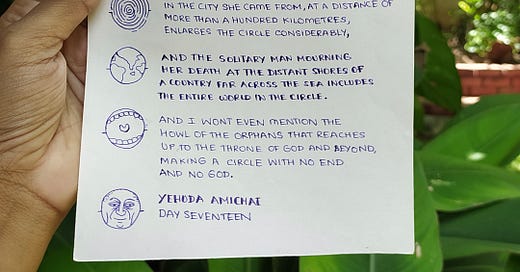 IN THE CITY SHE CAME FROM, AT A DISTANCE OF
MORE THAN A HUNDRED KILOMETRES,
ENLARGES THE CIRCLE CONSIDERABLY,
AND THE SOLITARY MAN MOURNING
HER DEATH AT THE DISTANT SHORES OF
A COUNTRY FAR ACROSS THE SEA INCLUDES
THE ENTIRE WORLD IN THE CIRCLE.
AND I WONT EVEN MENTION THE
HOWL OF THE ORPHANS THAT REACHES
UP TO THE THRONE OF GOD AND BEYOND,
MAKING A CIRCLE WITH NO END
AND NO GOD.
YEHUDA AMICHAI
DAY SEVENTEEN